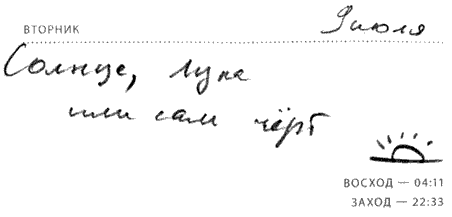 ВТОРНИК 9 июля
Солнце, Луна
или сам чёрт
ВОСХОД — 04:11
ЗАХОД — 22:33